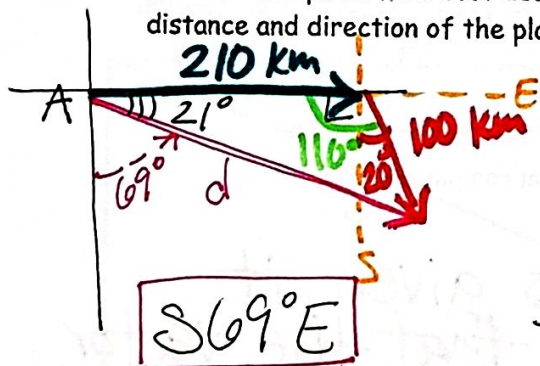 distance and direction of the pl
210 km
A
21°
E
110°
100 km
20
69°
d
S
S69°E